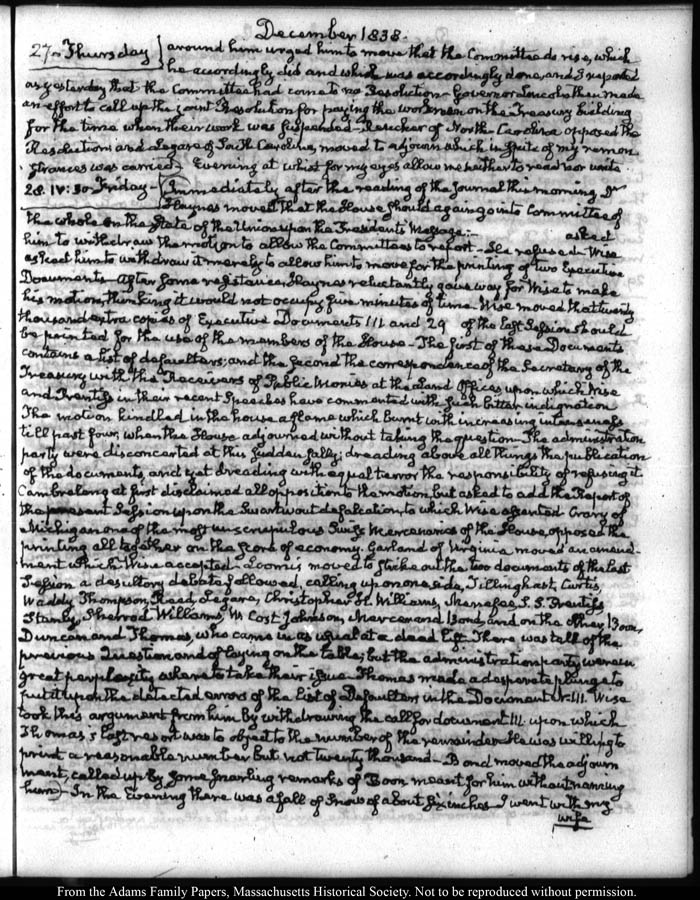 December 1838.
27. Thursday around him urged him to move that the Committee do rise, which
he accordingly did and which was accordingly done, and I reported
as yesterday that the Committee had come to no Resolution. Governor Lincoln then made
an effort to call up the joint Resolution for paying the workmen on the Treasury building
for the time when their work was suspended. Rencher of North Carolina opposed the
Resolution, and Legare of South Carolina, moved to adjourn which in spite of my remon
strances was carried. Evening at whist for my eyes allow me neither to read nor write.
28. IV:30 Friday— Immediately after the reading of the Journal this morning,
Haynes moved that the House should again go into Committee of
the whole on the State of the Union upon the President's Message:— asked
him to withdraw the motion to allow the Committees to report— He refused— Wise
asked him to withdraw it merely to allow him to move for the printing of two Executive
Documents— After some resistance, Haynes reluctantly gave way for Wise to make
his motion, thinking it would not occupy five minutes of time. Wise moved that twenty
thousand extra copies of Executive Documents 111 and 29 of the last Session should
be printed for the use of the members of the House— The first of these Documents
contains a list of defaulters; and the second the correspondence of the Secretary of the
Treasury with the Receivers of Public Monies at the Land Offices, upon which Wise
and Prentiss in their recent Speeches have commented with such bitter indignation
The motion kindled in the house a flame which burnt with increasing intenseness
till past four, when the House adjourned without taking the question— The administration
party were disconcerted at this sudden sally; dreading above all things the publication
of the documents, and yet dreading with equal terror the responsibility of refusing it
Cambreleng at first disclaimed all opposition to the motion, but asked to add the Report of
the present Session upon the Swartwout defalcation, to which Wise assented. Crary of
Michigan one of the most unscrupulous Swiss Mercenaries of the House, opposed the
printing all together on the score of economy. Garland of Virginia moved an amend-
ment which Wise accepted— Loomis moved to strike out the two documents of the last
Session a desultory debate followed, calling up on one side, Tillinghast, Curtis,
Waddy Thompson, Reed, Legare, Christopher H. Williams, Menefee, S. S. Prentiss,
Stanly, Sherrod Williams, W Cost Johnson, Mercer and Bond, and on the other, Boon,
Duncan and Thomas, who came in as usual at a dead lift. There was talk of the
previous Question and of laying on the table; but the administration party were in
great perplexity where to take their issue. Thomas made a desperate plunge to
put it upon the detected errors of the list of Defaulters in the Document N: 111. Wise
took this argument from him by withdrawing the call for document 111. upon which
Thomas's last resort was to object to the number of the remainder. He was willing to
print a reasonable number but not twenty thousand— Bond moved the adjourn
ment, called up by some snarling remarks of Boon meant for him without naming
him)— In the Evening there was a fall of snow of about six inches— I went with my
wife
From the Adams Family Papers, Massachusetts Historical Society. Not to be reproduced without permission.